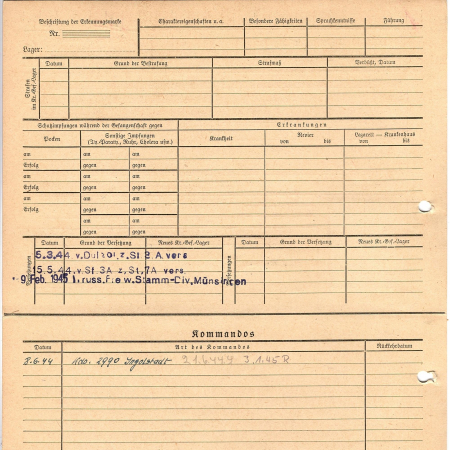 Beschriftung der Erkennungsmarke
Nr.
Lager:
Charaktereigenschaften u. a.
Besondere Fähigkeiten
Sprachkenntnisse
Führung
Strafen im Kr.-Gef.-Lager
Datum
Grund der Bestrafung
Strafmaß
Verbüßt, Datum
Schutzimpfungen während der Gefangenschaft gegen
Erkrankungen
Pocken
Sonstige Impfungen
(Ty.-Paratyp., Ruhr, Cholera usw.)
Krankheit
Revier
von bis
Lazarett — Krankenhaus
von bis
am am am
Erfolg gegen gegen
am am am
Erfolg gegen gegen
am am am
Erfolg gegen gegen
am am
gegen gegen
Datum
Grund der Versetzung
Neues Kr.-Gef.-Lager
Datum
Grund der Versetzung
Neues Kr.-Gef.-Lager
5.3.44 v. z. St. A vers
15.5.44 v. St. 3A z. St. 7A vers.
9. Feb. 1945 Stamm-Div. Münsingen
Kommandos
Datum
Art des Kommandos
Rückkehrdatum
8.6.44 Kdo. 2990 Ingolstadt 3.1.45 R